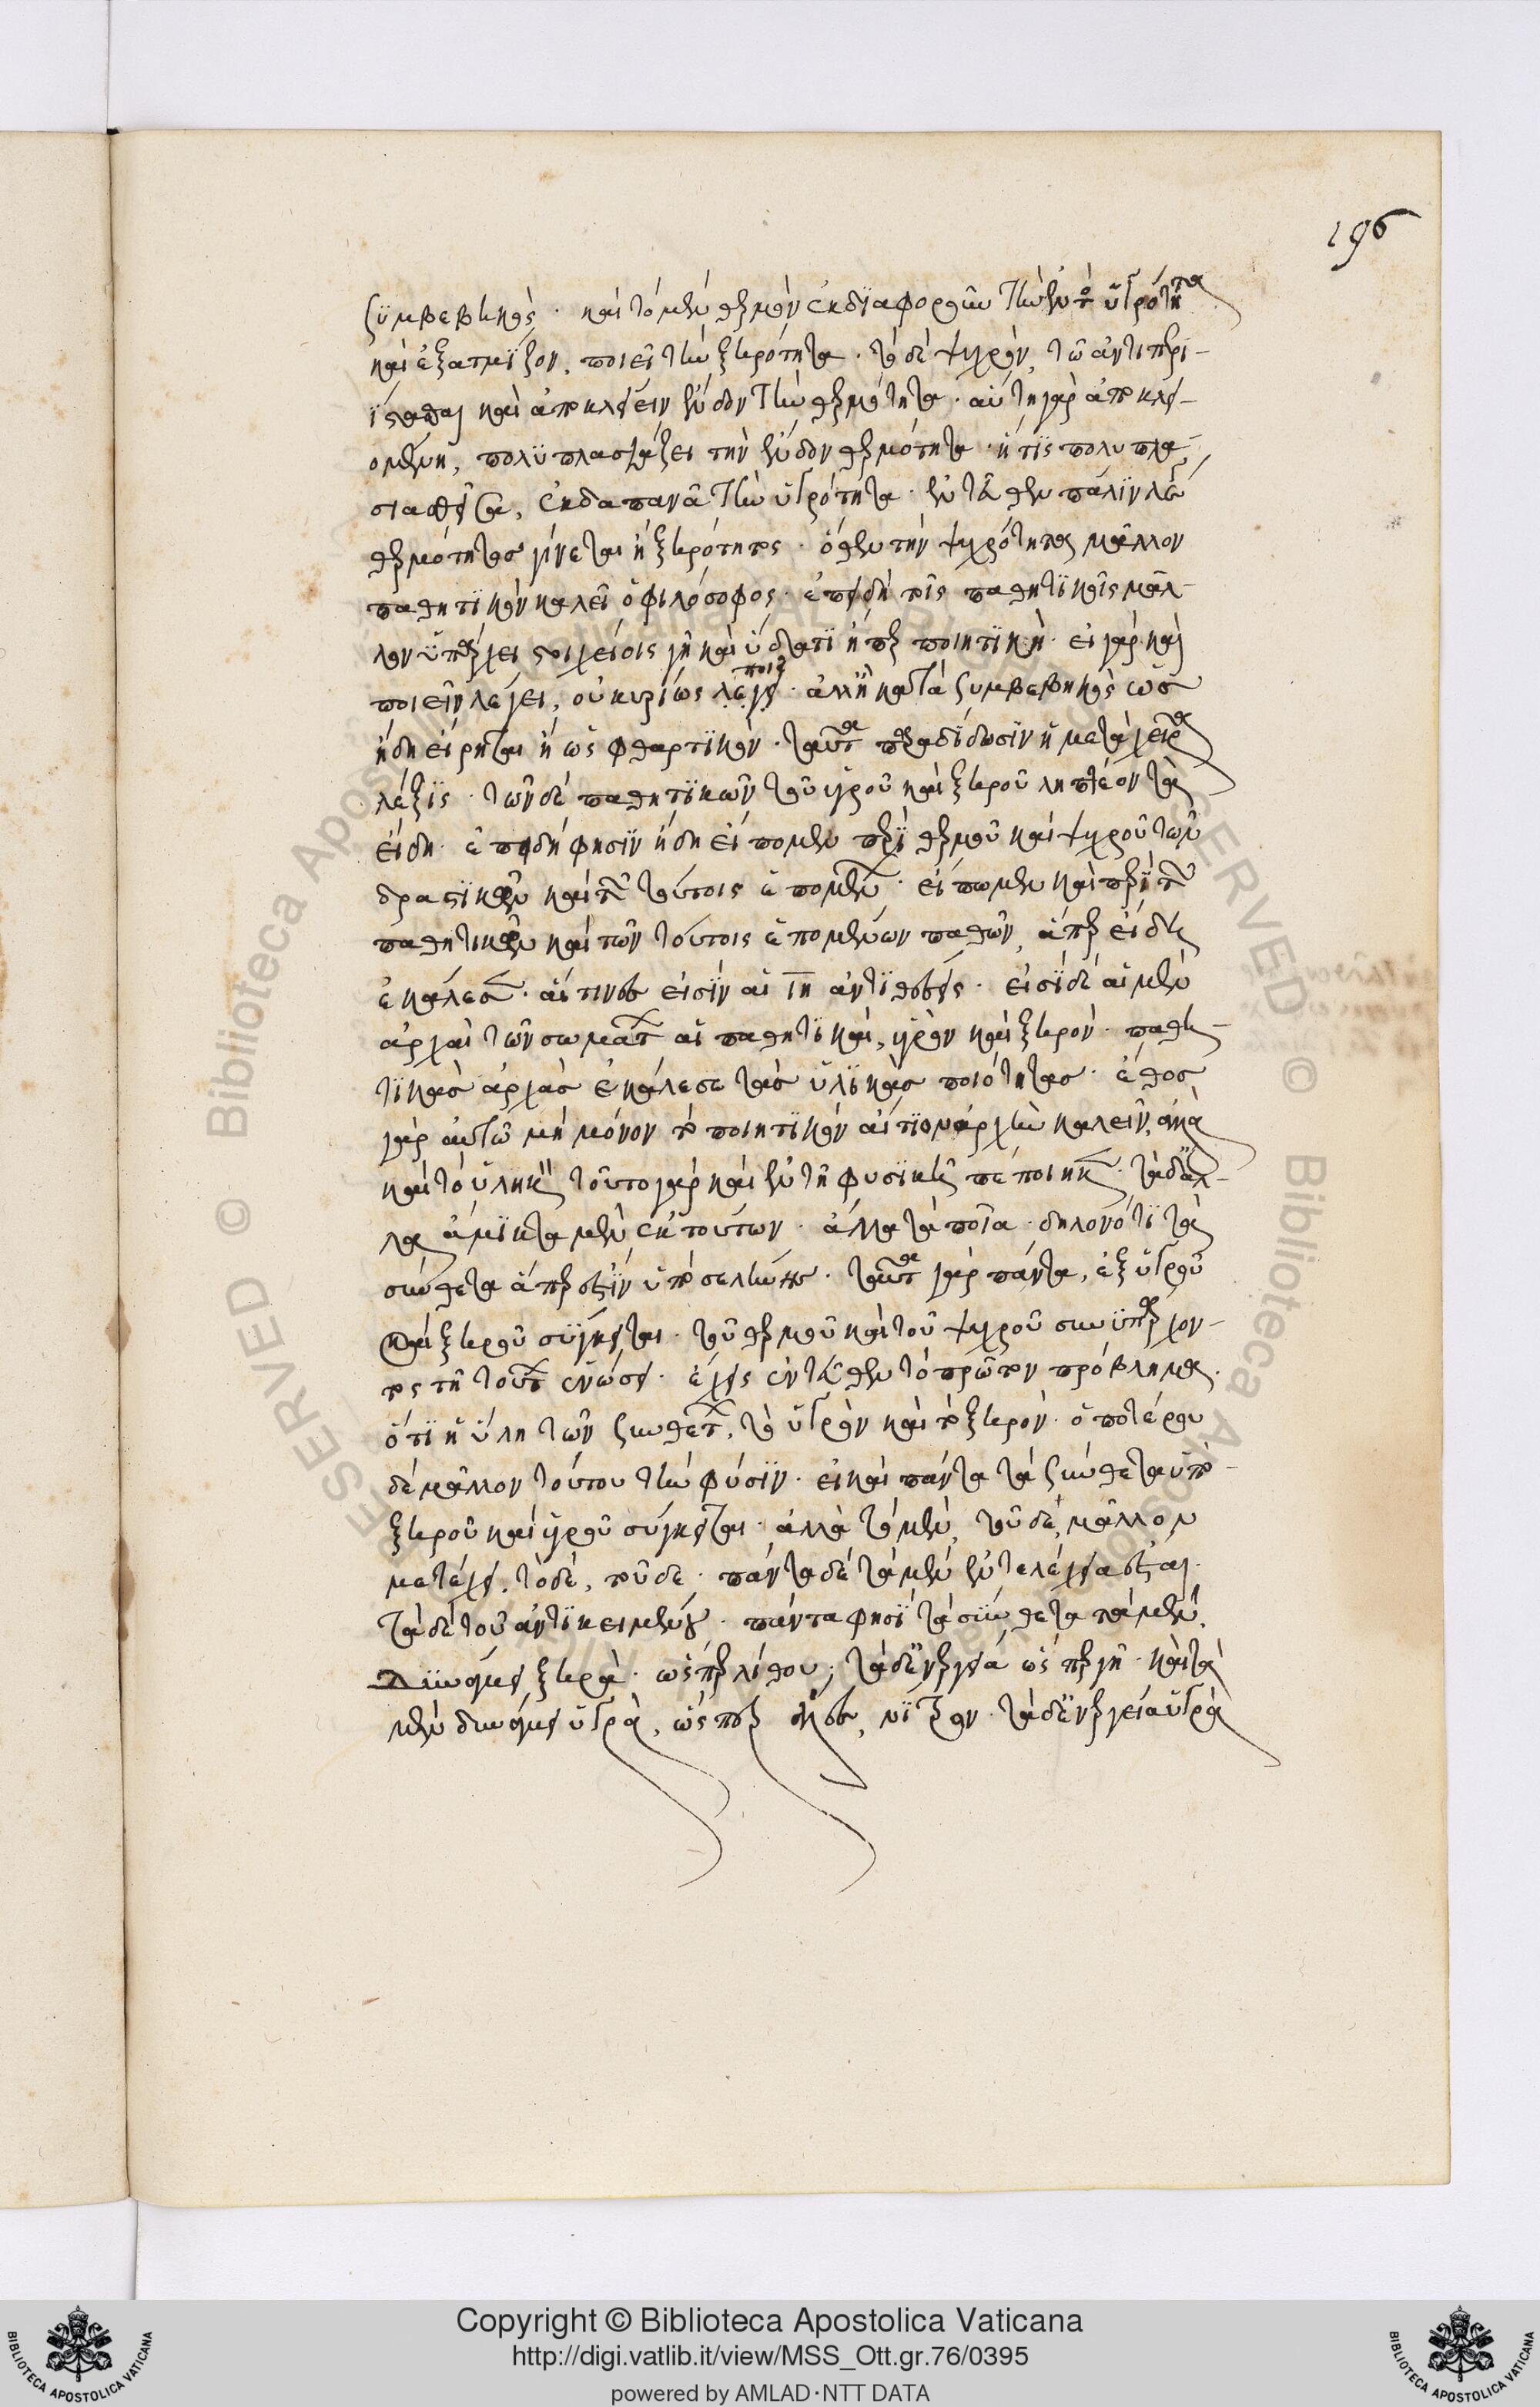 196
συμβεβηκός· καὶ τὸ μὲν θερμὸν ἐκδιαφοροῦν τὴν ἐν τῷ ὑγρότητα
καὶ ἐξατμίζον, ποιεῖ τὴν ξηρότητα· τὸ δὲ ψυχρὸν, τῷ ἀντιπερι-
ίστασθαι καὶ ἀποκλείειν ἔνδον τὴν θερμότητα· αὕτη γὰρ ἀποκλει-
ομένη, πολυπλασιάζει τὴν ἔνδον θερμότητα· ἥτις πολυπλα-
σιασθεῖσα, ἐκδαπανᾶ τὴν ὑγρότητα· ἐντεῦθεν πάλιν
θερμότητος γίνεται ἡ ξηρότητος· ὅθεν τὴν ψυχρότητα μᾶλλον
παθητικὴν καλεῖ ὁ φιλόσοφος· ἐπειδὴ τοῖς παθητικοῖς μᾶλ-
λον ὑπάρχει στοιχείοις γῆ καὶ ὕδατι ἤπερ ποιητικὴ· εἰ γὰρ καὶ
ποιεῖν λέγει, οὐ κυρίως λέγει ποιεῖ· ἀλλ' ἢ κατὰ συμβεβηκὸς ὡς
ἤδη εἴρηται ἢ ὡς φθαρτικὸν· ταῦτα παραδίδωσιν ἡ μετὰ χεῖρα
λέξις· τῶν δὲ παθητικῶν τοῦ ὑγροῦ καὶ ξηροῦ ληπτέον τὰ
εἴδη· ἐπειδή φησιν ἤδη εἴπομεν περὶ θερμοῦ καὶ ψυχροῦ τῶν
δραστικῶν καὶ τῶν τούτοις ἑπομένων· εἴπωμεν καὶ περὶ τῶν
παθητικῶν καὶ τῶν τούτοις ἑπομένων παθῶν, ἅπερ εἴδη
ἐκάλεσεν· αἵτινες εἰσὶν αἱ ιη ἀντιθέσεις· εἰσὶ δὲ αἱ μὲν
ἀρχαὶ τῶν σωμάτων αἱ παθητικαὶ, ὑγρὸν καὶ ξηρόν· παθη-
τικὰς ἀρχὰς ἐκάλεσε τὰς ὑλικὰς ποιότητας· ἔθος
γὰρ αὐτῷ μὴ μόνον τὸ ποιητικὸν αἴτιον ἀρχὴν καλεῖν, ἀλλὰ
καὶ τὸ ὑλικόν τοῦτο γὰρ καὶ ἐν τῆ φυσικῆ πεποίηκε· τὰ δ' ἄλ-
λα ἄμικτα μὲν ἐκ τούτων· ἀλλὰ τὰ ποῖα· δηλονότι τὰ
σύνθετα ἅπερ ἐστὶν ὑπὸ σελήνην· ταῦτα γὰρ πάντα, ἐξ ὑγροῦ
καὶ ξηροῦ σύγκειται· τοῦ θερμοῦ καὶ τοῦ ψυχροῦ συνυπάρχον-
τος τῆ τούτων ἑνώσει· ἔχεις ἐντεῦθεν τὸ πρῶτον πρόβλημα·
ὅτι ἡ ὕλη τῶν συνθέτων, τὸ ὑγρὸν καὶ τὸ ξηρόν· ὁποτέρου
δὲ μᾶλλον τούτου τὴν φύσιν· εἰ καὶ πάντα τὰ σύνθετα ὑπὸ
ξηροῦ καὶ ὑγροῦ σύγκειται· ἀλλὰ τὸ μὲν, τοῦδε, μᾶλλον
μετέχει, τὸ δὲ, τοῦδε· πάντα δὲ τὰ μὲν ἐντελεχείᾳ ἐστὶ·
τὰ δὲ τοῦ ἀντικειμένου· πάντα φησὶ τὰ σύνθετα τὰ μὲν,
δυνάμει ξηρὰ· ὥσπερ λίθου; τὰ δ' ἐνεργείᾳ ὥσπερ γῆ· καὶ τὰ
μὲν δυνάμει ὑγρὰ, ὥσπερ ἅλες, νίτρον· τὰ δ' ἐνεργείᾳ ὑγρὰ
Copyright © Biblioteca Apostolica Vaticana
http://digi.vatlib.it/view/MSS_Ott.gr.76/0395
powered by AMLAD·NTT DATA